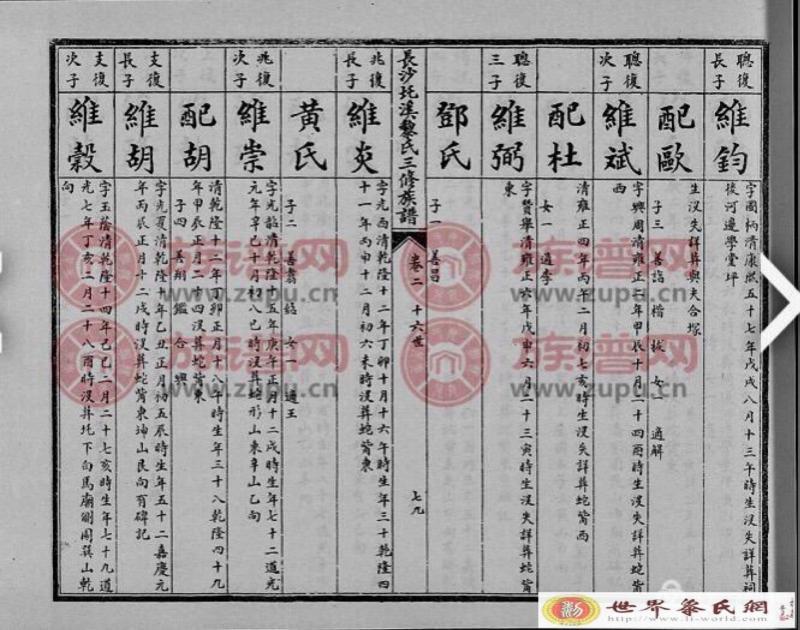 聰復
長子
維鈞
字國柄清康熙五十七年戊戌八月十三午時生沒失詳葬祠
後河邊學堂坪
配歐
生沒失詳葬與夫合塚
子三 善詒 楷 拔 女一 適解
聰復
次子
維斌
字興周清雍正二年甲辰十月二十四酉時生沒失詳葬蛇嘴
西
配杜
清雍正四年丙午二月初七亥時生沒失詳葬蛇嘴西
女一 適李
聰復
三子
維弼
字贊舉清雍正六年戊申六月二十三寅時生沒失詳葬蛇嘴
東
鄧氏
子一 善呂
長沙圫溪黎氏三修族譜
卷二 十六世
七九
兆復
長子
維炎
字光西清乾隆十二年丁卯十月十六午時生年三十乾隆四
十一年丙申十二月初六未時沒葬蛇嘴東
黃氏
子二 善翥 喆 女一 適王
兆復
次子
維崇
字光韜清乾隆十五年庚午正月十二戌時生年七十二道光
元年辛巳十月初八巳時沒葬蛇形山東辛山乙向
配胡
清乾隆十二年丁卯正月十八午時生年三十八乾隆四十九
年甲辰正月二十四沒葬蛇嘴東
子四 善翔 鑑 合 興
支復
長子
維胡
字光夏清乾隆十年乙丑正月初五辰時生年五十二嘉慶元
年丙辰正月十二戌時沒葬蛇嘴東坤山艮向有碑記
支復
次子
維穀
字玉蔭清乾隆十四年己巳二月二十七亥時生年七十九道
光七年丁亥二月二十八酉時沒葬圫下向馬廟側園巽山乾
向
族普网
www.zupu.cn
族普网
www.zupu.cn
族普网
www.zupu.cn
族普网
www.zupu.cn
世界黎氏網
www.li-world.com